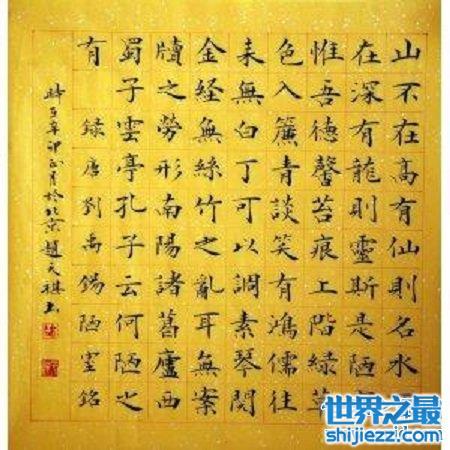 山不在髙有仙則名水
在深有龍則靈斯是陋
惟吾德馨苔痕上階綠草
色入簾青談笑有鴻儒往
来無白丁可以調素琴閱
金経無絲竹之亂耳無案
牘之勞形南陽諸葛廬西
蜀子雲亭孔子云何陋之
有 録唐劉禹錫陋室銘
辛卯正月於北京趙天祺书
世界之最
shijiezzi.com